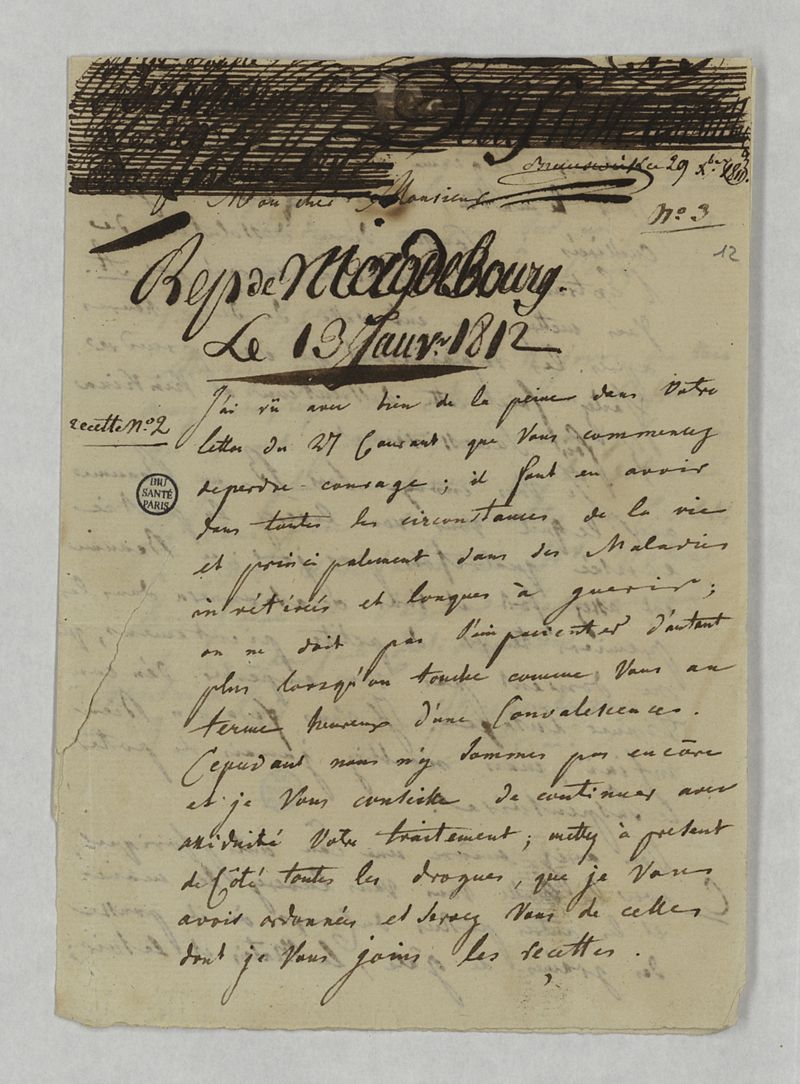 Brunswick ce 29 Xbre 1811
Mon cher Monsieur
No. 3
12
Rep de Magdebourg.
Le 13 Janvr. 1812
recette No. 2
J'ai vû avec bien de la peine dans Votre
lettre du 27 Courant que Vous commencez
de perdre courage ; il faut en avoir
dans toutes les circonstances de la vie
et principalement dans des Maladies
invétérées et longues à guerir ;
on ne doit pas s'impatienter d'autant
plus lorsqu'on touche comme Vous au
terme heureux d'une Convalescence.
Cependant nous n'y Sommes pas encôre
et je Vous conseille de continuer avec
assiduité Votre traitement ; mettez à present
de Côté toutes les drogues, que je Vous
avois ordonnées et Servez Vous de celles
dont je Vous joins les recettes.
BIU
SANTÉ
PARIS